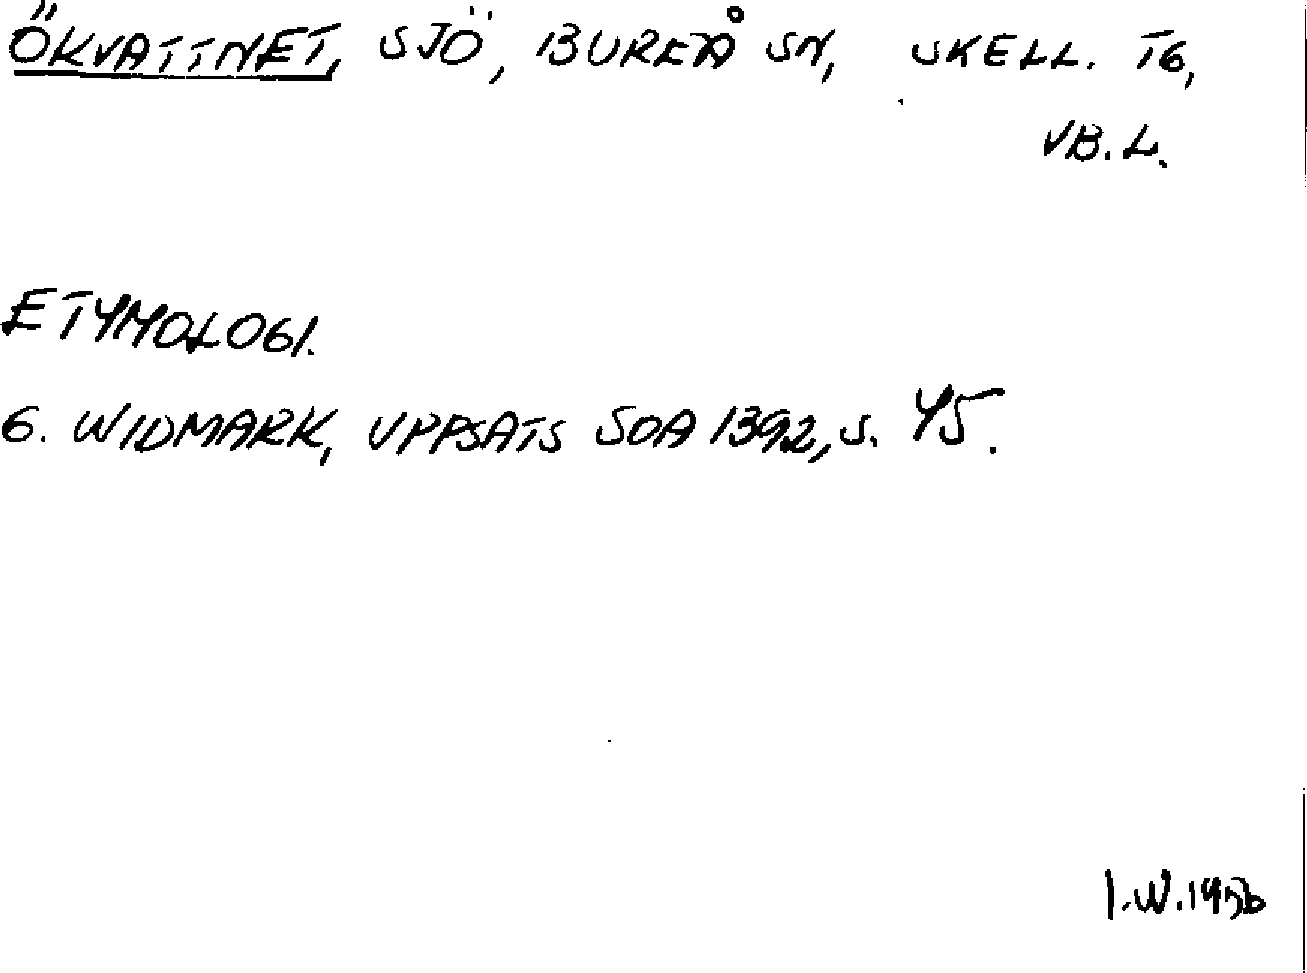 ÖKVATTNET, SJÖ, BUREÅ SN, SKELL. TG,
VB.L.
ETYMOLOGI.
G. WIDMARK, UPPSATS SOA 1392, S. 45.
I.W.1956